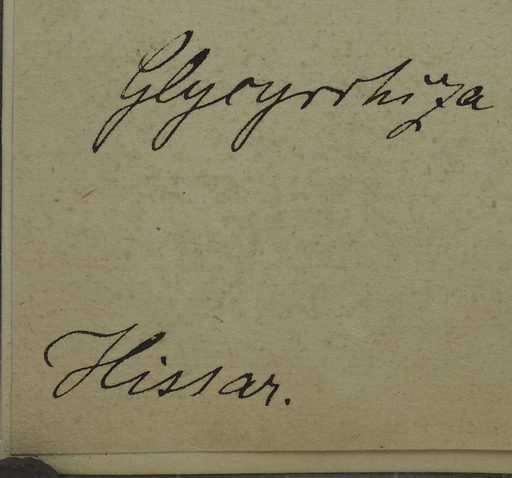 Glycyrrhiza
Hissar.